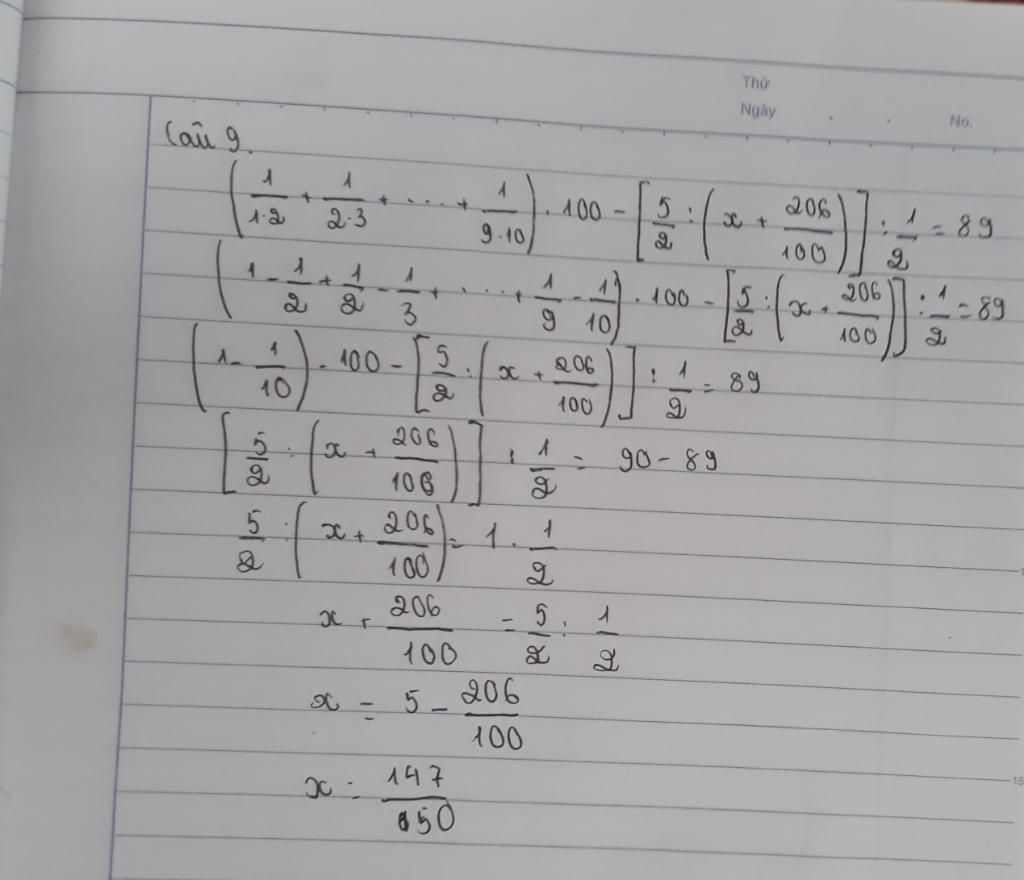 Thứ
Ngày . . No.
Câu 9.
(1/1·2 + 1/2·3 + .... + 1/9·10) . 100 - [5/2 : (x + 206/100)] : 1/2 = 89
(1 - 1/2 + 1/2 - 1/3 + .... + 1/9 - 1/10) . 100 - [5/2 : (x + 206/100)] : 1/2 = 89
(1 - 1/10) . 100 - [5/2 : (x + 206/100)] : 1/2 = 89
[5/2 : (x + 206/100)] : 1/2 = 90 - 89
5/2 : (x + 206/100) = 1 . 1/2
x + 206/100 = 5/2 : 1/2
x = 5 - 206/100
x = 147/50
15